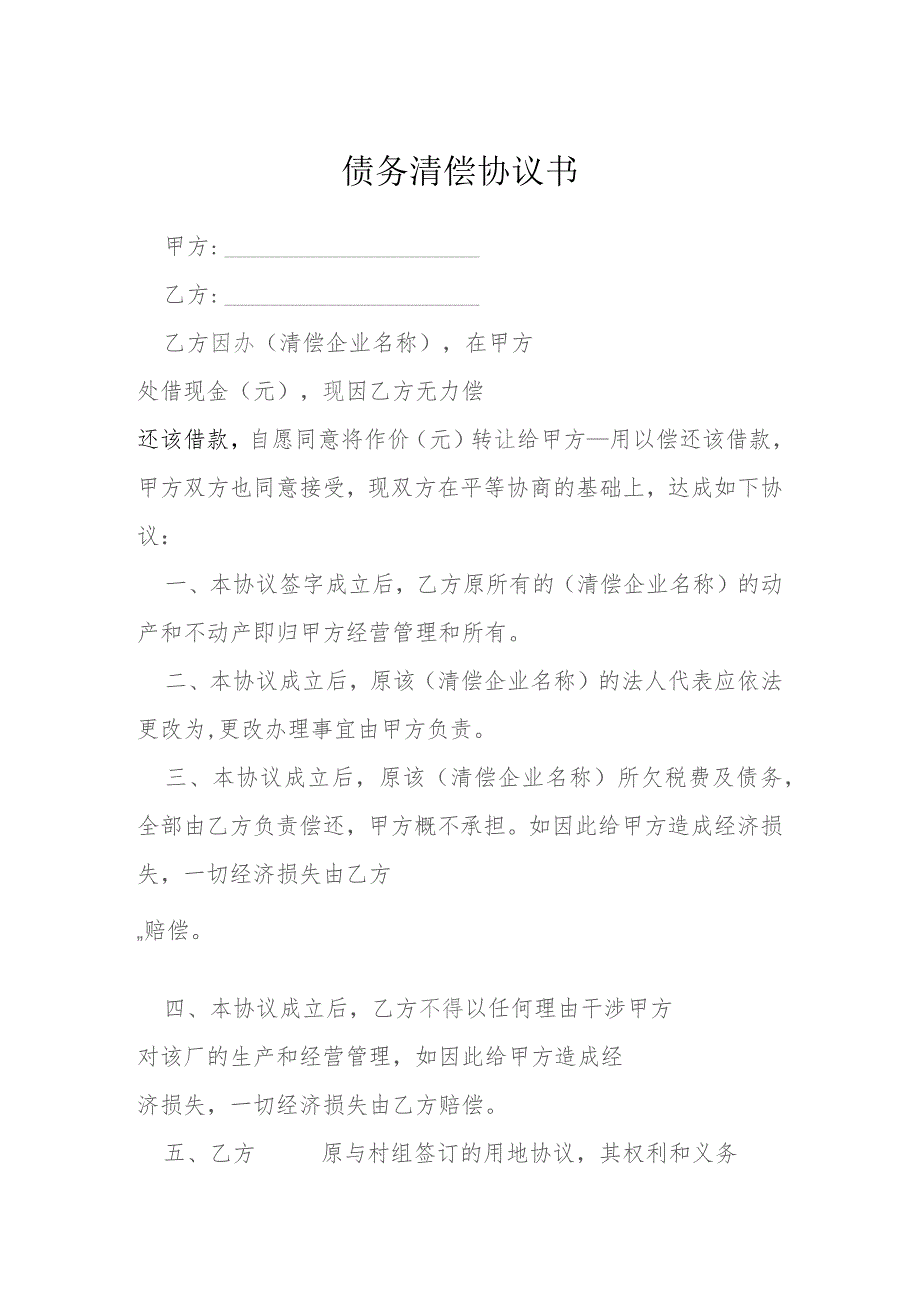 债务清偿协议书
甲方：
乙方：
乙方因办（清偿企业名称），在甲方
处借现金（元），现因乙方无力偿
还该借款，自愿同意将作价（元）转让给甲方—用以偿还该借款，
甲方双方也同意接受，现双方在平等协商的基础上，达成如下协
议：
一、本协议签字成立后，乙方原所有的（清偿企业名称）的动
产和不动产即归甲方经营管理和所有。
二、本协议成立后，原该（清偿企业名称）的法人代表应依法
更改为,更改办理事宜由甲方负责。
三、本协议成立后，原该（清偿企业名称）所欠税费及债务，
全部由乙方负责偿还，甲方概不承担。如因此给甲方造成经济损
失，一切经济损失由乙方
„赔偿。
四、本协议成立后，乙方不得以任何理由干涉甲方
对该厂的生产和经营管理，如因此给甲方造成经
济损失，一切经济损失由乙方赔偿。
五、乙方　　　原与村组签订的用地协议，其权利和义务